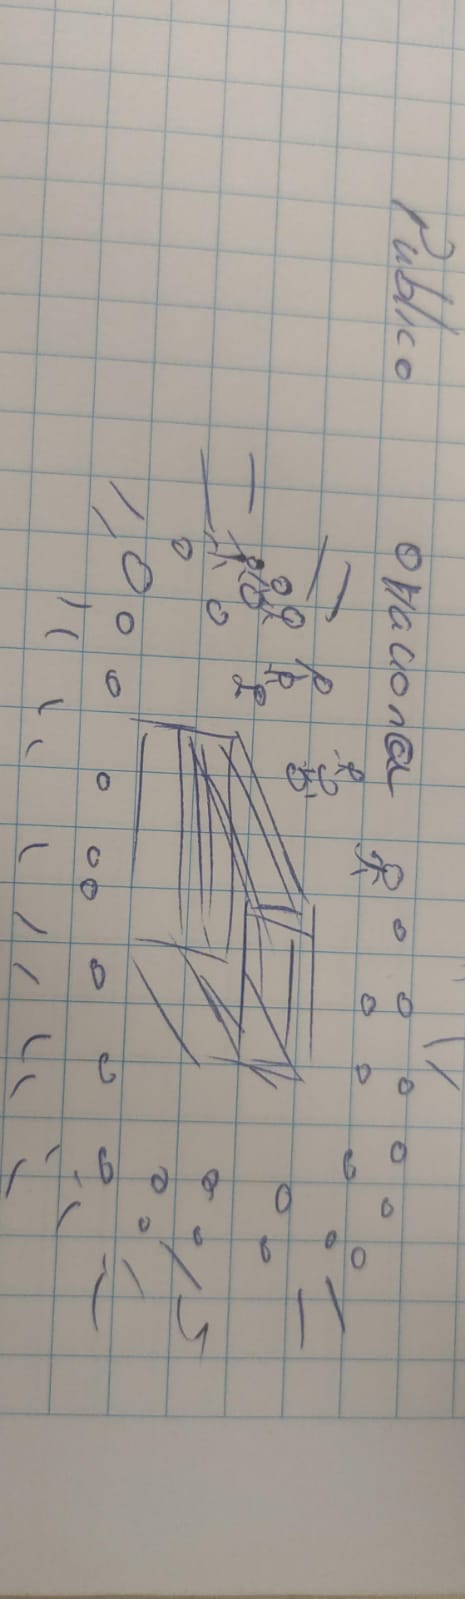 Publico ovaciona